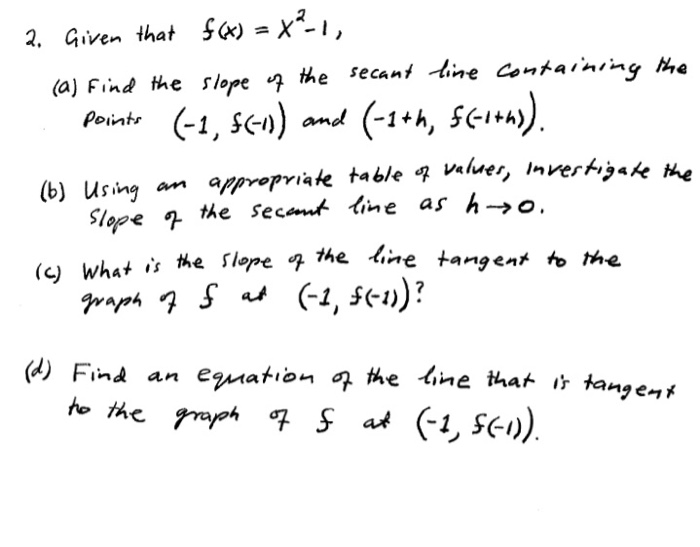 2. Given that f(x) = x²-1,
(a) Find the slope of the secant line containing the
points (-1, f(-1)) and (-1+h, f(-1+h)).
(b) Using an appropriate table of values, investigate the
slope of the secant line as h→0.
(c) What is the slope of the line tangent to the
graph of f at (-1, f(-1))?
(d) Find an equation of the line that is tangent
to the graph of f at (-1, f(-1)).